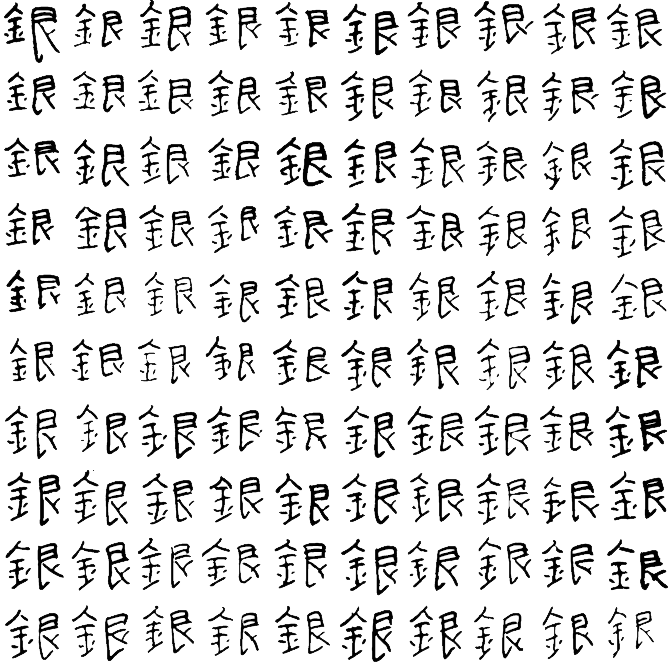 銀銀銀銀銀銀銀銀銀銀
銀銀銀銀銀銀銀銀銀銀
銀銀銀銀銀銀銀銀銀銀
銀銀銀銀銀銀銀銀銀銀
銀銀銀銀銀銀銀銀銀銀
銀銀銀銀銀銀銀銀銀銀
銀銀銀銀銀銀銀銀銀銀
銀銀銀銀銀銀銀銀銀銀
銀銀銀銀銀銀銀銀銀銀
銀銀銀銀銀銀銀銀銀銀